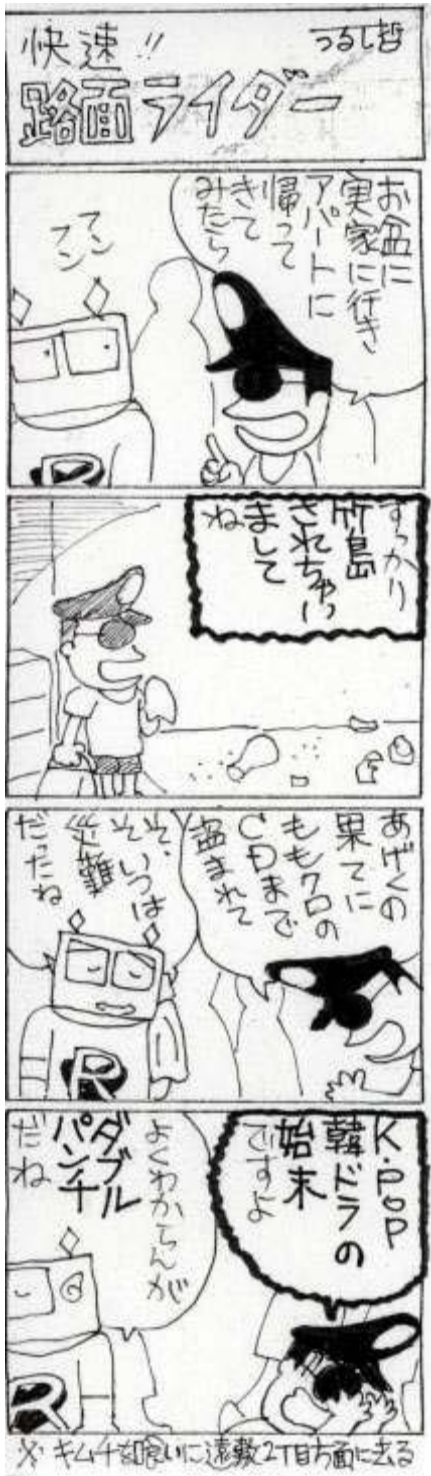 快速!!
つるし哲
路面ライダー
お盆に
実家に行き
アパートに
帰って
きて
みたら
フン
フン
すっかり
竹島
されちゃい
まして
ね
あげくの
果てに
ももクロの
CDまで
盗まれて
そ、
そいつは
災難
だったね
R
K・POP
韓ドラの
始末
ですよ
よくわからんが
ダブル
パンチ
だね
R
※キムチを喰いに遠敷2丁目方面に去る